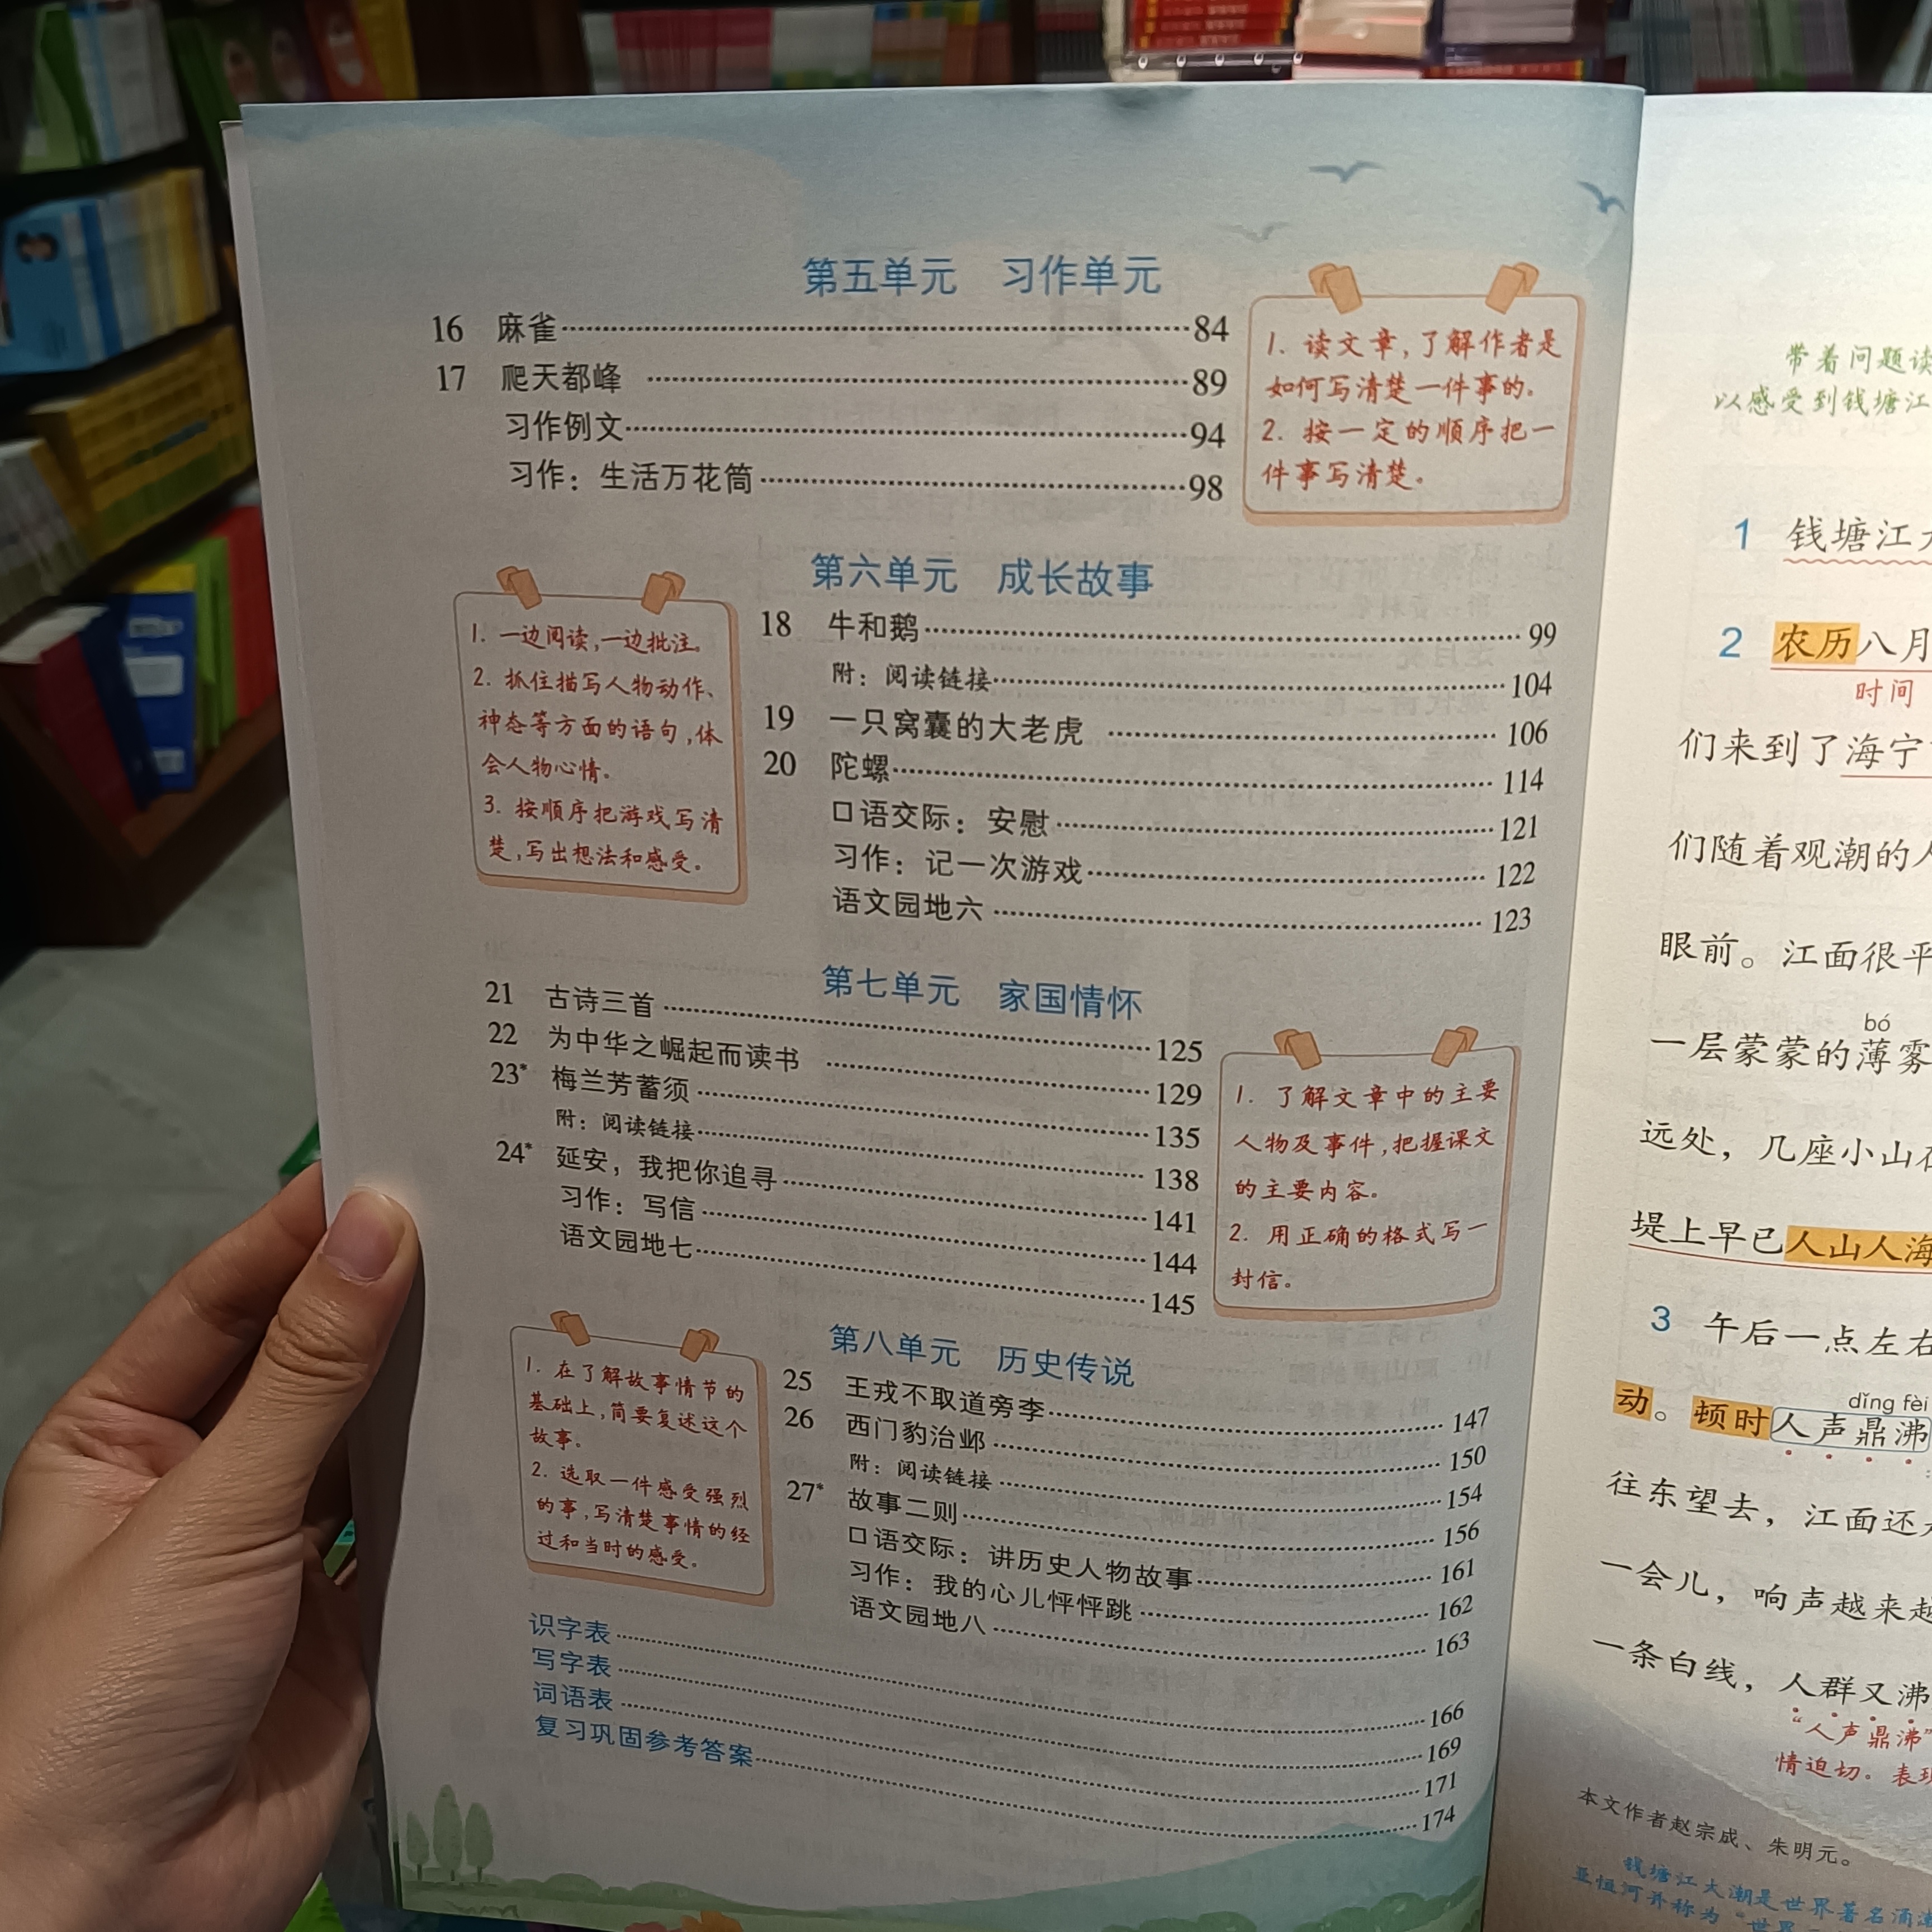 第五单元 习作单元
16 麻雀 84
17 爬天都峰 89
习作例文 94
习作：生活万花筒 98
1. 读文章，了解作者是
如何写清楚一件事的。
2. 按一定的顺序把一
件事写清楚。
第六单元 成长故事
1. 一边阅读，一边批注。
2. 抓住描写人物动作、
神态等方面的语句，体
会人物心情。
3. 按顺序把游戏写清
楚，写出想法和感受。
18 牛和鹅 99
附：阅读链接 104
19 一只窝囊的大老虎 106
20 陀螺 114
口语交际：安慰 121
习作：记一次游戏 122
语文园地六 123
第七单元 家国情怀
21 古诗三首 125
22 为中华之崛起而读书 129
23* 梅兰芳蓄须 135
附：阅读链接 138
24* 延安，我把你追寻 141
习作：写信 144
语文园地七 145
1. 了解文章中的主要
人物及事件，把握课文
的主要内容。
2. 用正确的格式写一
封信。
第八单元 历史传说
1. 在了解故事情节的
基础上，简要复述这个
故事。
2. 选取一件感受强烈
的事，写清楚事情的经
过和当时的感受。
25 王戎不取道旁李 147
26 西门豹治邺 150
附：阅读链接 154
27* 故事二则 156
口语交际：讲历史人物故事 161
习作：我的心儿怦怦跳 162
语文园地八 163
识字表 166
写字表 169
词语表 171
复习巩固参考答案 174
带着问题读
以感受到钱塘江
1 钱塘江
2 农历八月
时间
们来到了海宁
们随着观潮的
眼前。江面很平
bó
一层蒙蒙的薄雾
远处，几座小山
堤上早已人山人海
3 午后一点左右
dǐng fèi
动。顿时人声鼎沸
往东望去，江面还
一会儿，响声越来越
一条白线，人群又沸
“人声鼎沸”
情迫切。表现
本文作者赵宗成、朱明元。
钱塘江大潮是世界著名涌潮
亚恒河并称为“世界